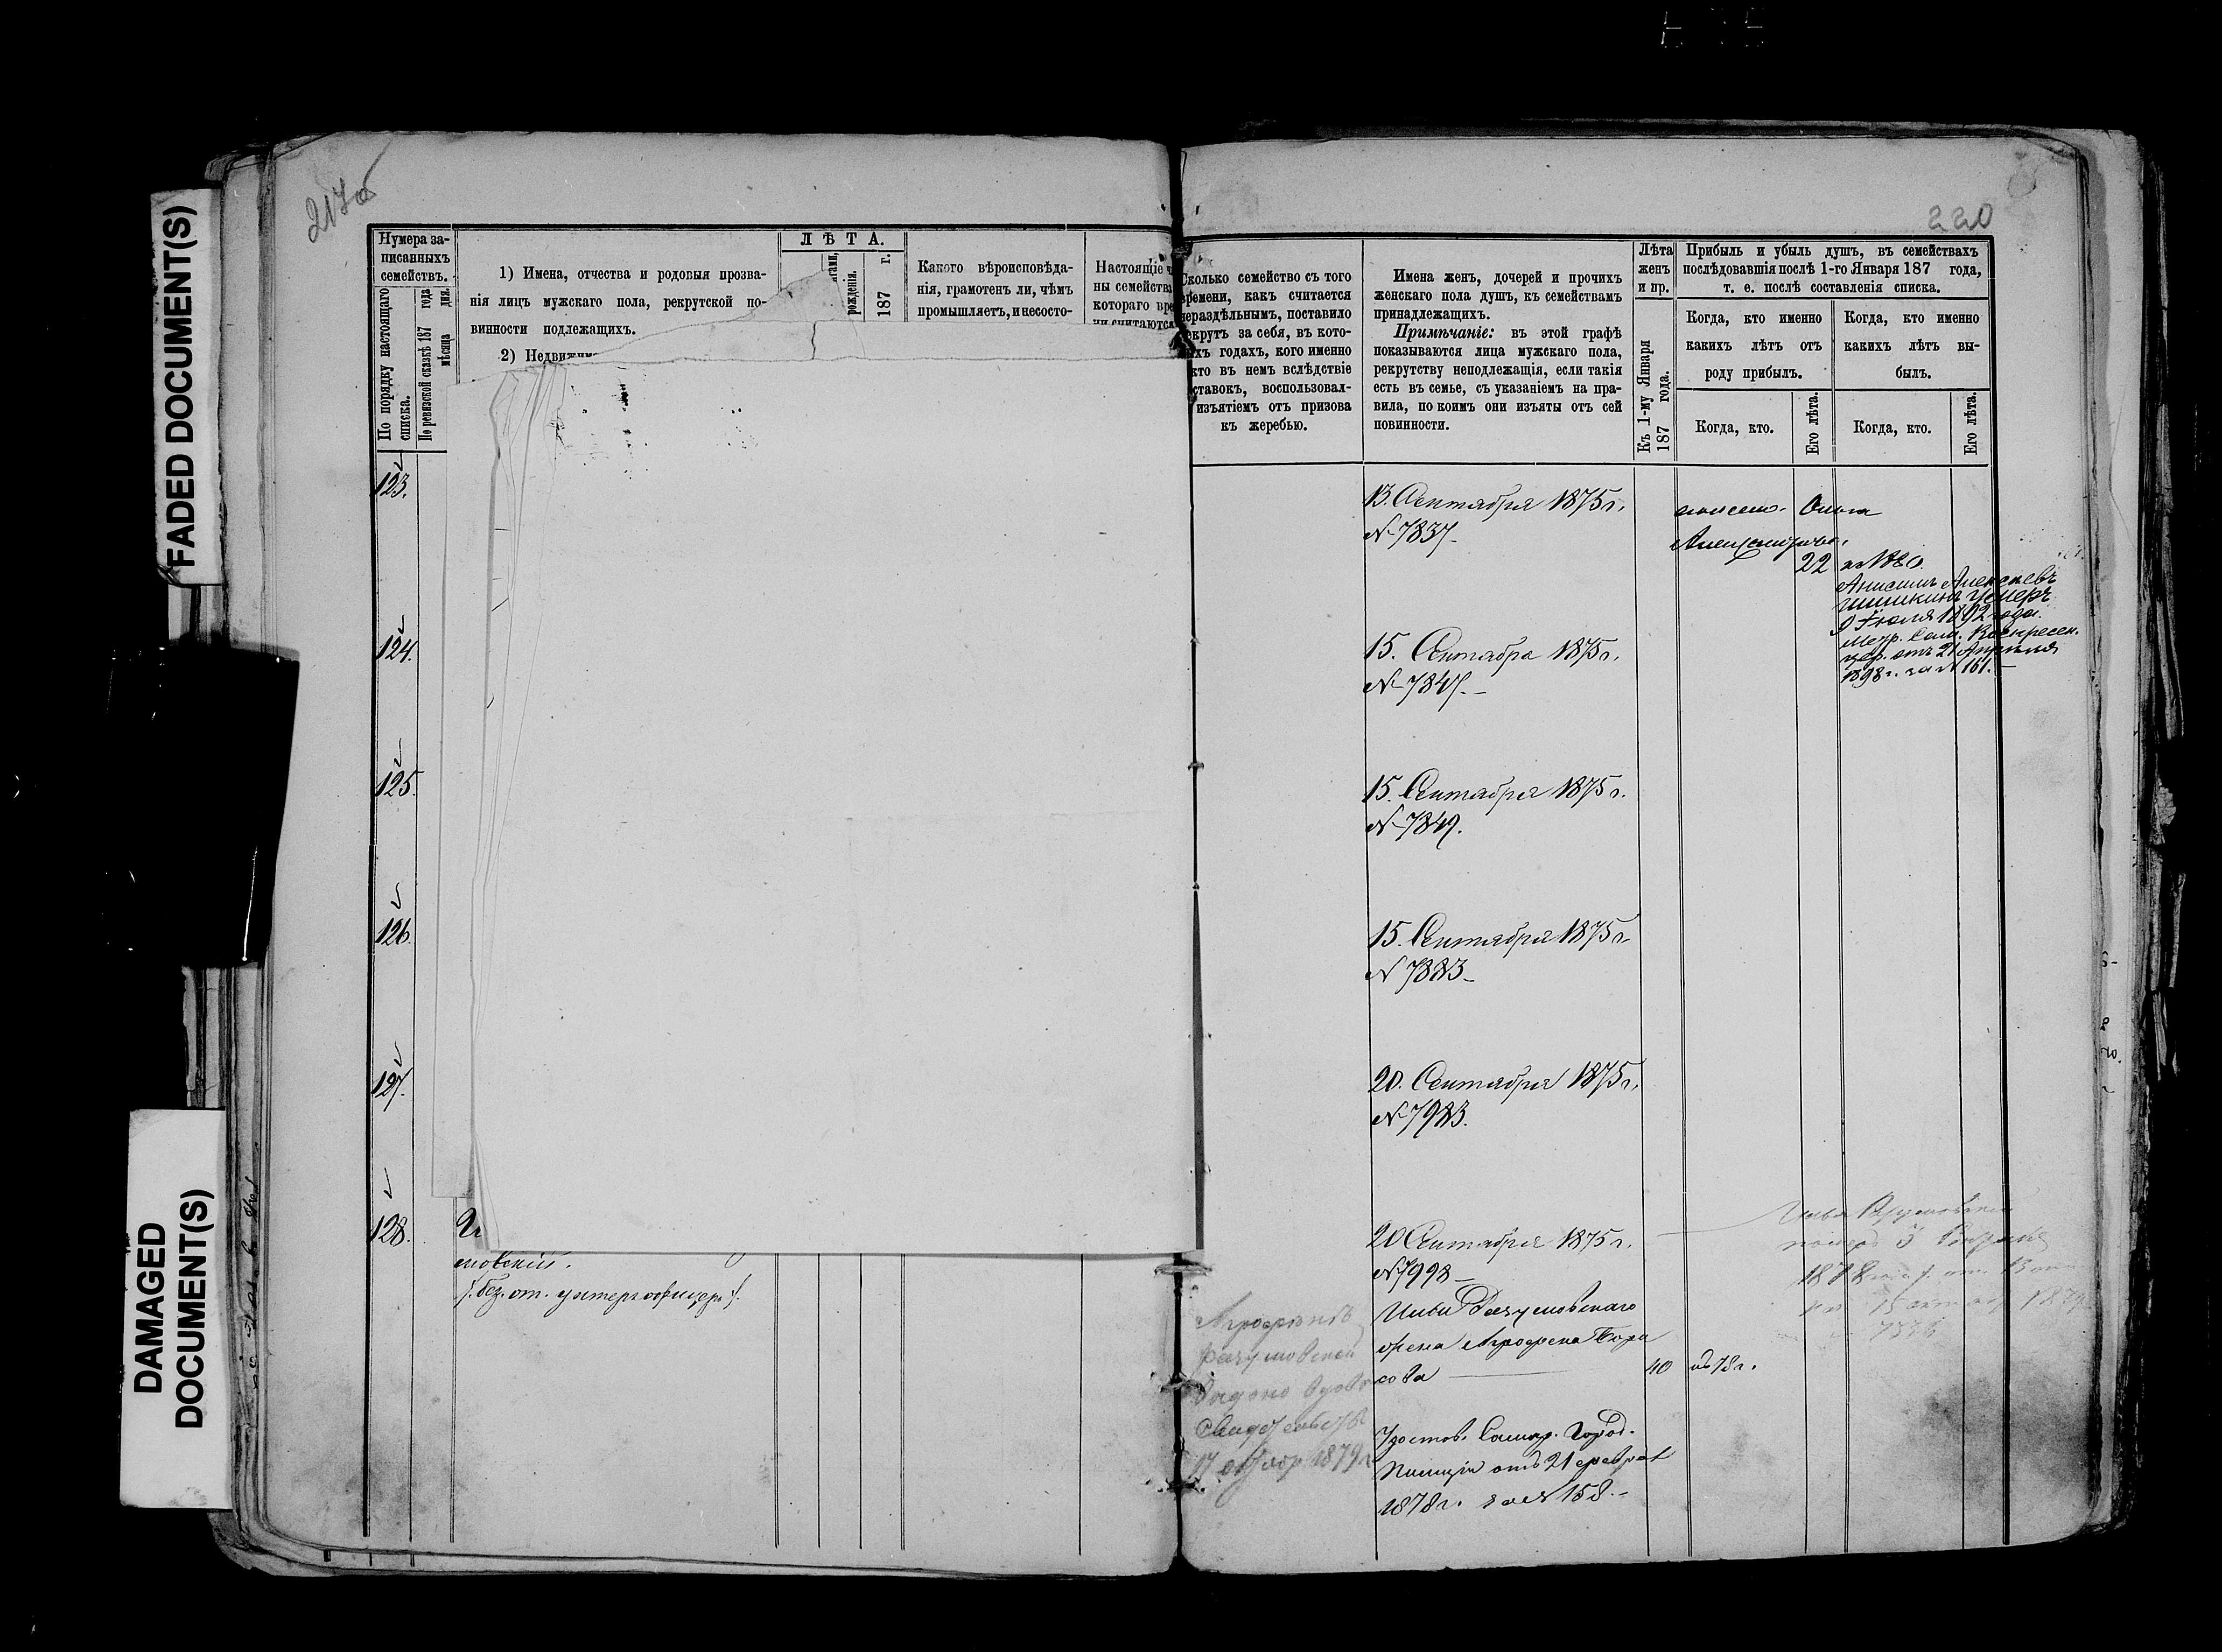 FADED DOCUMENT(S)
DAMAGED
DOCUMENT(S)
220
Нумера за-
писанныхъ
семействъ.
По порядку настоящаго
списка.
По ревизской сказкѣ 187 года
мѣсяца дня.
1) Имена, отчества и родовыя прозва-
нія лицъ мужскаго пола, рекрутской по-
винности подлежащихъ.
2) Недвижим
ЛѢТА.
рожденія.
187 г.
Какого вѣроисповѣда-
нія, грамотенъ ли, чѣмъ
промышляетъ, и несосто-
Настоящіе ч
ны семейств
котораго вре
ни считаются
Сколько семейство съ того
времени, какъ считается
нераздѣльнымъ, поставило
рекрутъ за себя, въ кото-
ыхъ годахъ, кого именно
кто въ немъ вслѣдствіе
ставокъ, воспользовал-
изъятіемъ отъ призова
къ жеребью.
Имена женъ, дочерей и прочихъ
женскаго пола душъ, къ семействамъ
принадлежащихъ.
Примѣчаніе: въ этой графѣ
показываются лица мужскаго пола,
рекрутству неподлежащія, если такія
есть въ семье, съ указаніемъ на пра-
вила, по коимъ они изъяты отъ сей
повинности.
Лѣта
женъ
и пр.
Къ 1-му Января
187 года.
Прибыль и убыль душъ, въ семействахъ
послѣдовавшія послѣ 1-го Января 187 года,
т. е. послѣ составленія списка.
Когда, кто именно
какихъ лѣтъ отъ
роду прибылъ.
Когда, кто именно
какихъ лѣтъ вы-
былъ.
Когда, кто.
Его лѣта.
Когда, кто.
Его лѣта.
123.
13. Сентября 1875 г.
№ 7837
Ольга
22
Алексѣевъ
Шишкинъ умеръ
9 Іюля 1892 года.
Метр. Сам. Воскресен.
цер. отъ 21 Апрѣля
1898 г. за № 161.
124.
15. Сентября 1875 г.
125.
15. Сентября 1875 г.
№ 7849.
126.
15. Сентября 1875 г.
№ 7883
127.
20. Сентября 1875 г.
№ 7983.
128.
мовскій.
(без. от. унтеръ офицеръ).
20 Сентября 1875 г.
№ 7998
Разумовскаго
жена Агрофена Бори
сова
40
въ 78 г.
Удостов. Самар. Город.
Полиціи отъ 21 феврал
1878 г. за № 158.
Разумовской
выдано вдовь
свидетельств
17 октяор 1879 г